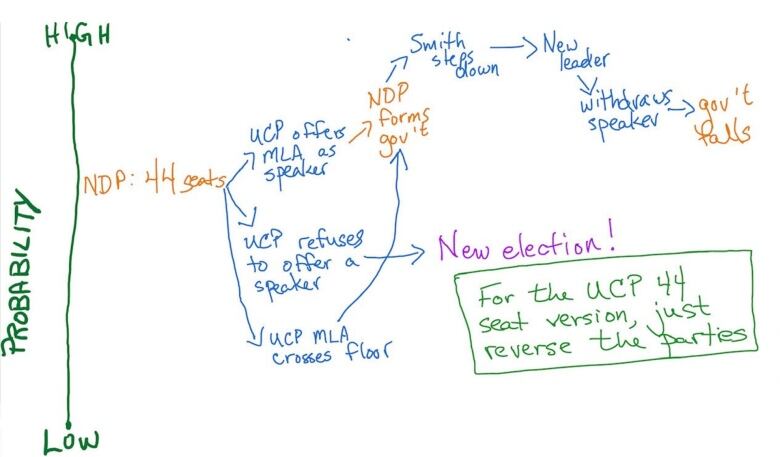 HIGH
PROBABILITY
LOW
NDP: 44 seats
UCP offers
MLA as
speaker
NDP
forms
gov't
Smith
steps
down
New
leader
withdraws
speaker
gov't
falls
UCP refuses
to offer a
speaker
New election!
UCP MLA
crosses floor
For the UCP 44
seat version, just
reverse the parties